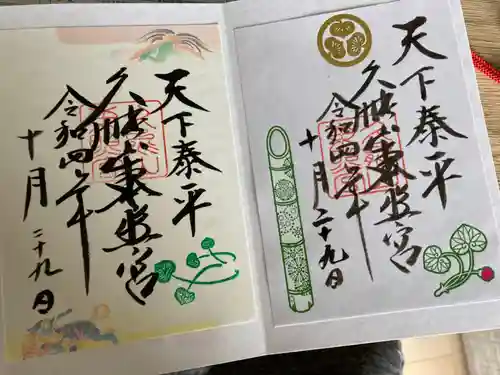 天下泰平
久能山東照宮
令和四年
十月二十九日
天下泰平
久能山東照宮
令和四年
十月二十九日